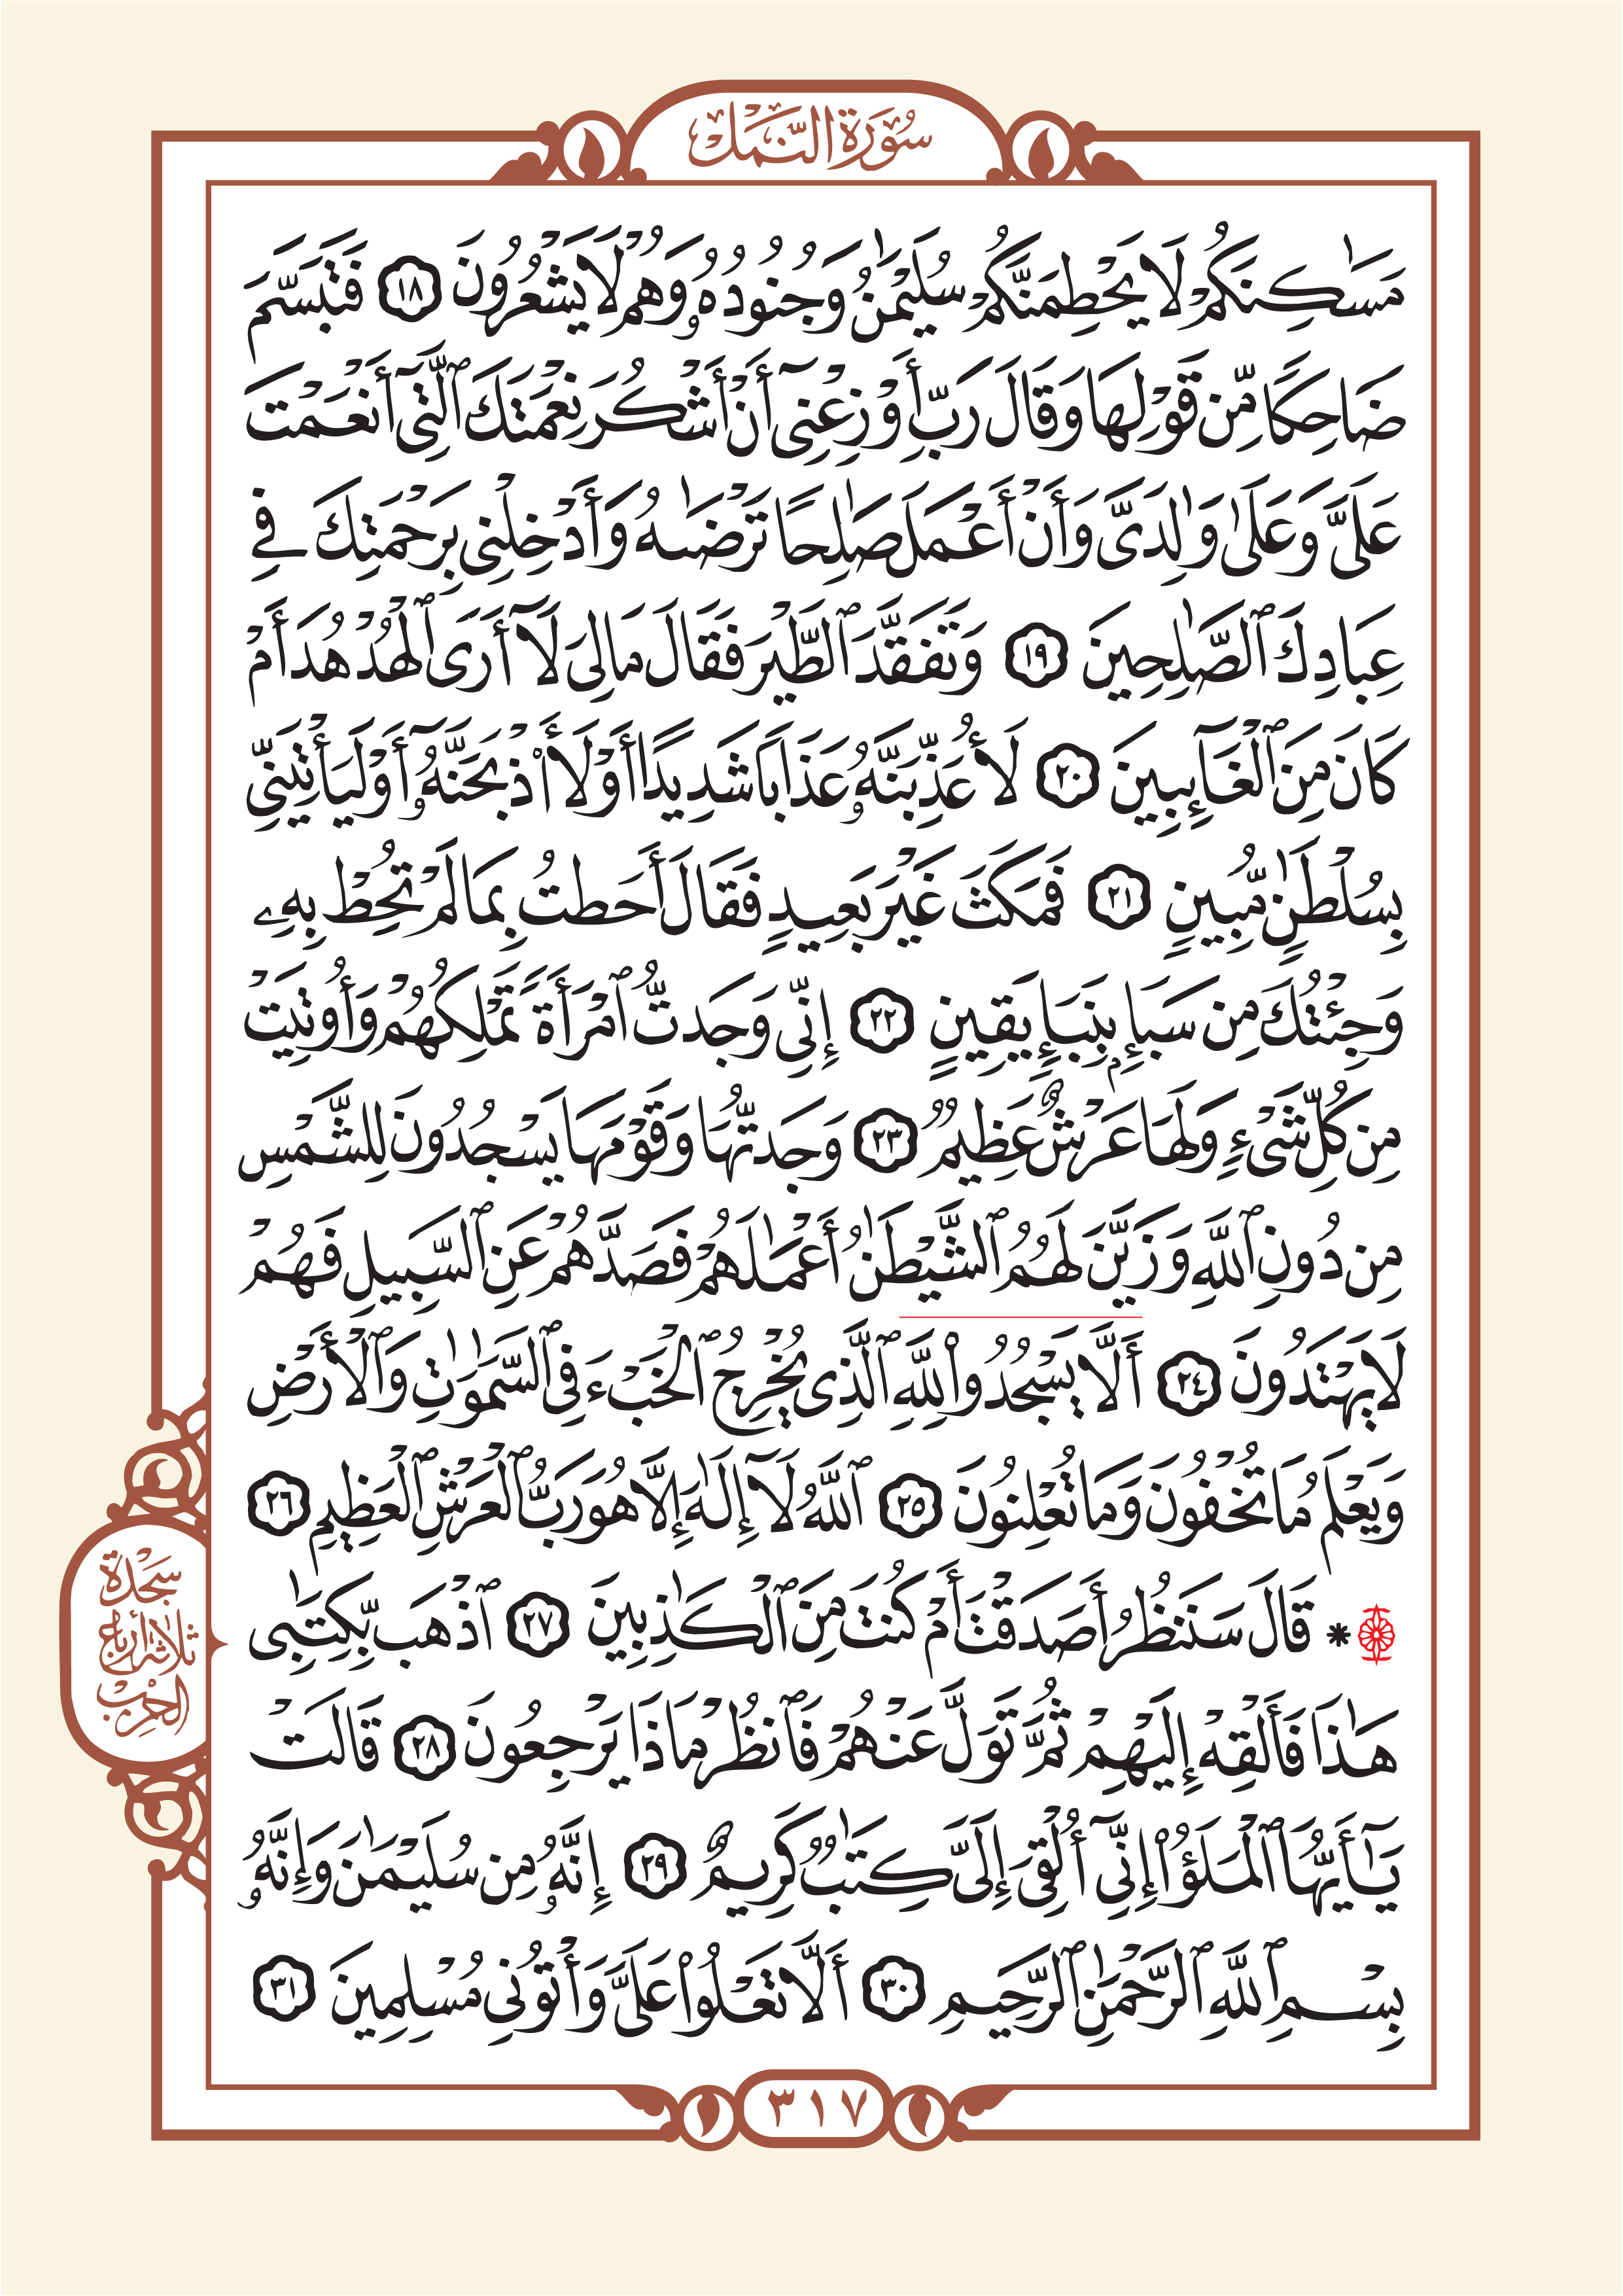 سُورَةُ النَّمْلِ
مَسَٰكِنَكُمْ لَا يَحْطِمَنَّكُمْ سُلَيْمَٰنُ وَجُنُودُهُۥ وَهُمْ لَا يَشْعُرُونَ ١٨ فَتَبَسَّمَ
ضَاحِكًا مِّن قَوْلِهَا وَقَالَ رَبِّ أَوْزِعْنِىٓ أَنْ أَشْكُرَ نِعْمَتَكَ ٱلَّتِىٓ أَنْعَمْتَ
عَلَىَّ وَعَلَىٰ وَٰلِدَىَّ وَأَنْ أَعْمَلَ صَٰلِحًا تَرْضَىٰهُ وَأَدْخِلْنِى بِرَحْمَتِكَ فِى
عِبَادِكَ ٱلصَّٰلِحِينَ ١٩ وَتَفَقَّدَ ٱلطَّيْرَ فَقَالَ مَا لِىَ لَآ أَرَى ٱلْهُدْهُدَ أَمْ
كَانَ مِنَ ٱلْغَآئِبِينَ ٢٠ لَأُعَذِّبَنَّهُۥ عَذَابًا شَدِيدًا أَوْ لَأَا۟ذْبَحَنَّهُۥٓ أَوْ لَيَأْتِيَنِّى
بِسُلْطَٰنٍ مُّبِينٍ ٢١ فَمَكَثَ غَيْرَ بَعِيدٍ فَقَالَ أَحَطتُ بِمَا لَمْ تُحِطْ بِهِۦ
وَجِئْتُكَ مِن سَبَإٍۭ بِنَبَإٍ يَقِينٍ ٢٢ إِنِّى وَجَدتُّ ٱمْرَأَةً تَمْلِكُهُمْ وَأُوتِيَتْ
مِن كُلِّ شَىْءٍ وَلَهَا عَرْشٌ عَظِيمٌ ٢٣ وَجَدتُّهَا وَقَوْمَهَا يَسْجُدُونَ لِلشَّمْسِ
مِن دُونِ ٱللَّهِ وَزَيَّنَ لَهُمُ ٱلشَّيْطَٰنُ أَعْمَٰلَهُمْ فَصَدَّهُمْ عَنِ ٱلسَّبِيلِ فَهُمْ
لَا يَهْتَدُونَ ٢٤ أَلَّا يَسْجُدُوا۟ لِلَّهِ ٱلَّذِى يُخْرِجُ ٱلْخَبْءَ فِى ٱلسَّمَٰوَٰتِ وَٱلْأَرْضِ
وَيَعْلَمُ مَا تُخْفُونَ وَمَا تُعْلِنُونَ ٢٥ ٱللَّهُ لَآ إِلَٰهَ إِلَّا هُوَ رَبُّ ٱلْعَرْشِ ٱلْعَظِيمِ ۩ ٢٦
* قَالَ سَنَنظُرُ أَصَدَقْتَ أَمْ كُنتَ مِنَ ٱلْكَٰذِبِينَ ٢٧ ٱذْهَب بِّكِتَٰبِى
هَٰذَا فَأَلْقِهْ إِلَيْهِمْ ثُمَّ تَوَلَّ عَنْهُمْ فَٱنظُرْ مَاذَا يَرْجِعُونَ ٢٨ قَالَتْ
يَٰٓأَيُّهَا ٱلْمَلَؤُا۟ إِنِّىٓ أُلْقِىَ إِلَىَّ كِتَٰبٌ كَرِيمٌ ٢٩ إِنَّهُۥ مِن سُلَيْمَٰنَ وَإِنَّهُۥ
بِسْمِ ٱللَّهِ ٱلرَّحْمَٰنِ ٱلرَّحِيمِ ٣٠ أَلَّا تَعْلُوا۟ عَلَىَّ وَأْتُونِى مُسْلِمِينَ ٣١
سَجْدَة
ثلاثة أرباع
الحِزْب
٣١٧